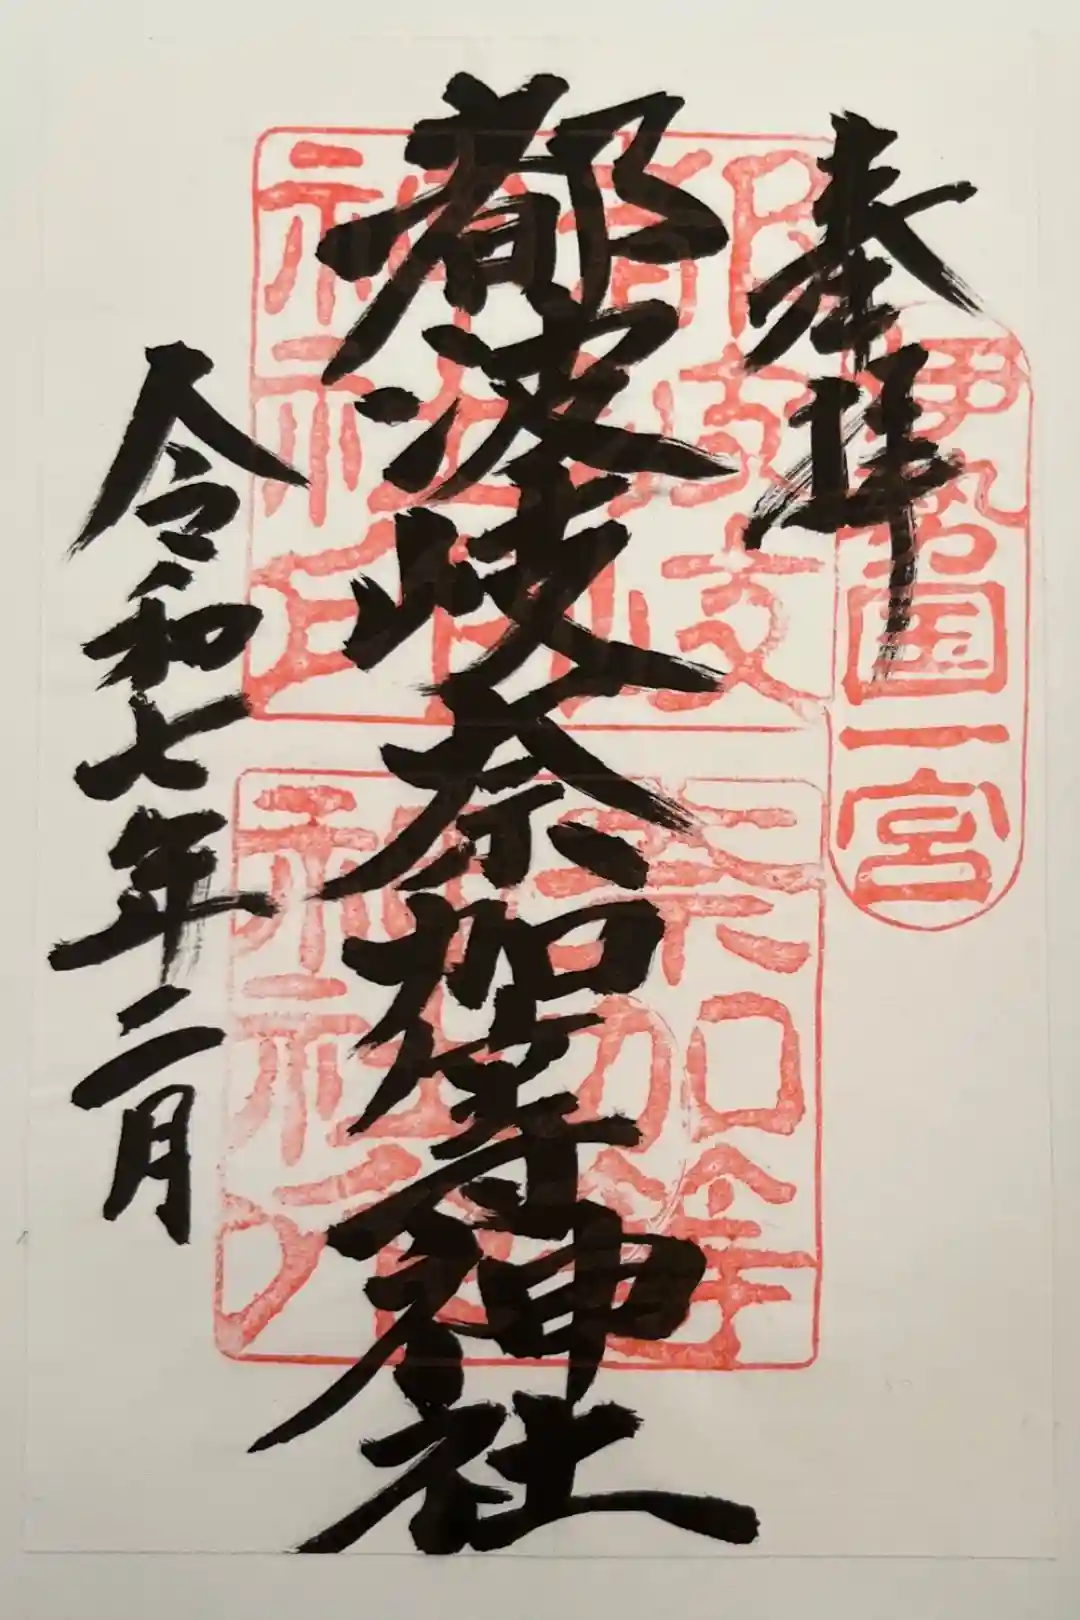 奉拝
伊勢國一宮
都波岐奈加等神社
都波岐
神社印
奈加等
神社印
令和七年二月